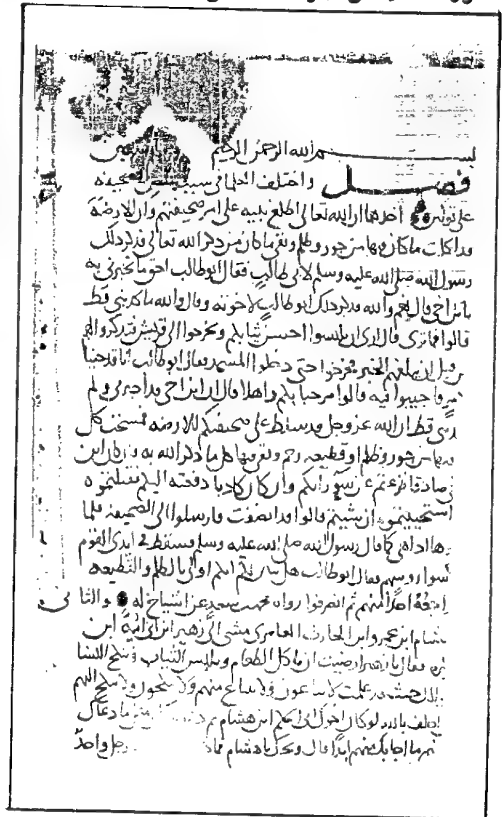 بسم الله الرحمن الرحيم وبه نستعين
فصل واختلف العلما في سبب نقض الصحيفه
على قولين احدهما ان الله تعالى اطلع نبيه على امر صحيفتهم وان الارضة
قد اكلت ما كان فيها من جور وظلم وبقي ما كان من ذكر الله تعالى فذكر ذلك
رسول الله صلى الله عليه وسلم لابي طالب فقال ابو طالب احق ما تخبرني به
يا بن اخي قال نعم والله فذكر ذلك ابو طالب لاخوته وقال والله ما كذبني قط
قالوا فما ترى قال ارى ان تلبسوا احسن ثيابكم وتخرجوا الى قريش فتذكروا لهم
قبل ان يبلغهم الخبر فخرجوا حتى دخلوا المسجد فقال ابو طالب انا قد جينا
لامر فاجيبوا فيه قالوا مرحبا بكم واهلا قال ان ابن اخي قد اخبرني ولم
قط ان الله عز وجل قد سلط على صحيفتكم الارضة فمسحت كل
فيها من جور وظلم او قطيعه رحم وبقي فيها كل ما ذكر الله به فان كان ابن
اخي صادقا نزعتم عن سو رايكم وان كان كاذبا دفعته اليكم فقتلتموه
او استحييتموه ان شيتم قالوا قد انصفت فارسلوا الى الصحيفه فلما
اذا هي كما قال رسول الله صلى الله عليه وسلم فسقط في ايدي القوم
روسهم فقال ابو طالب هل تبين لكم انكم اولى بالظلم والقطيعه
احد منهم ثم انصرفوا رواه محمد بن سعد عن اشياخ له والثاني
هشام ابن عمرو ابن الحارث العامري مشى الى زهير ابن ابي امية ابن
فقال يا زهير ارضيت ان تاكل الطعام وتلبس الثياب وتنكح النسا
حيث قد علمت لا يباعون ولا يبتاع منهم ولا ينكحون ولا ينكح اليهم
احلف بالله لو كان اخوال ابي الحكم ابن هشام ثم دعاك
ما اجابك اليه منهم ابدا قال ويحك يا هشام رجل واحد